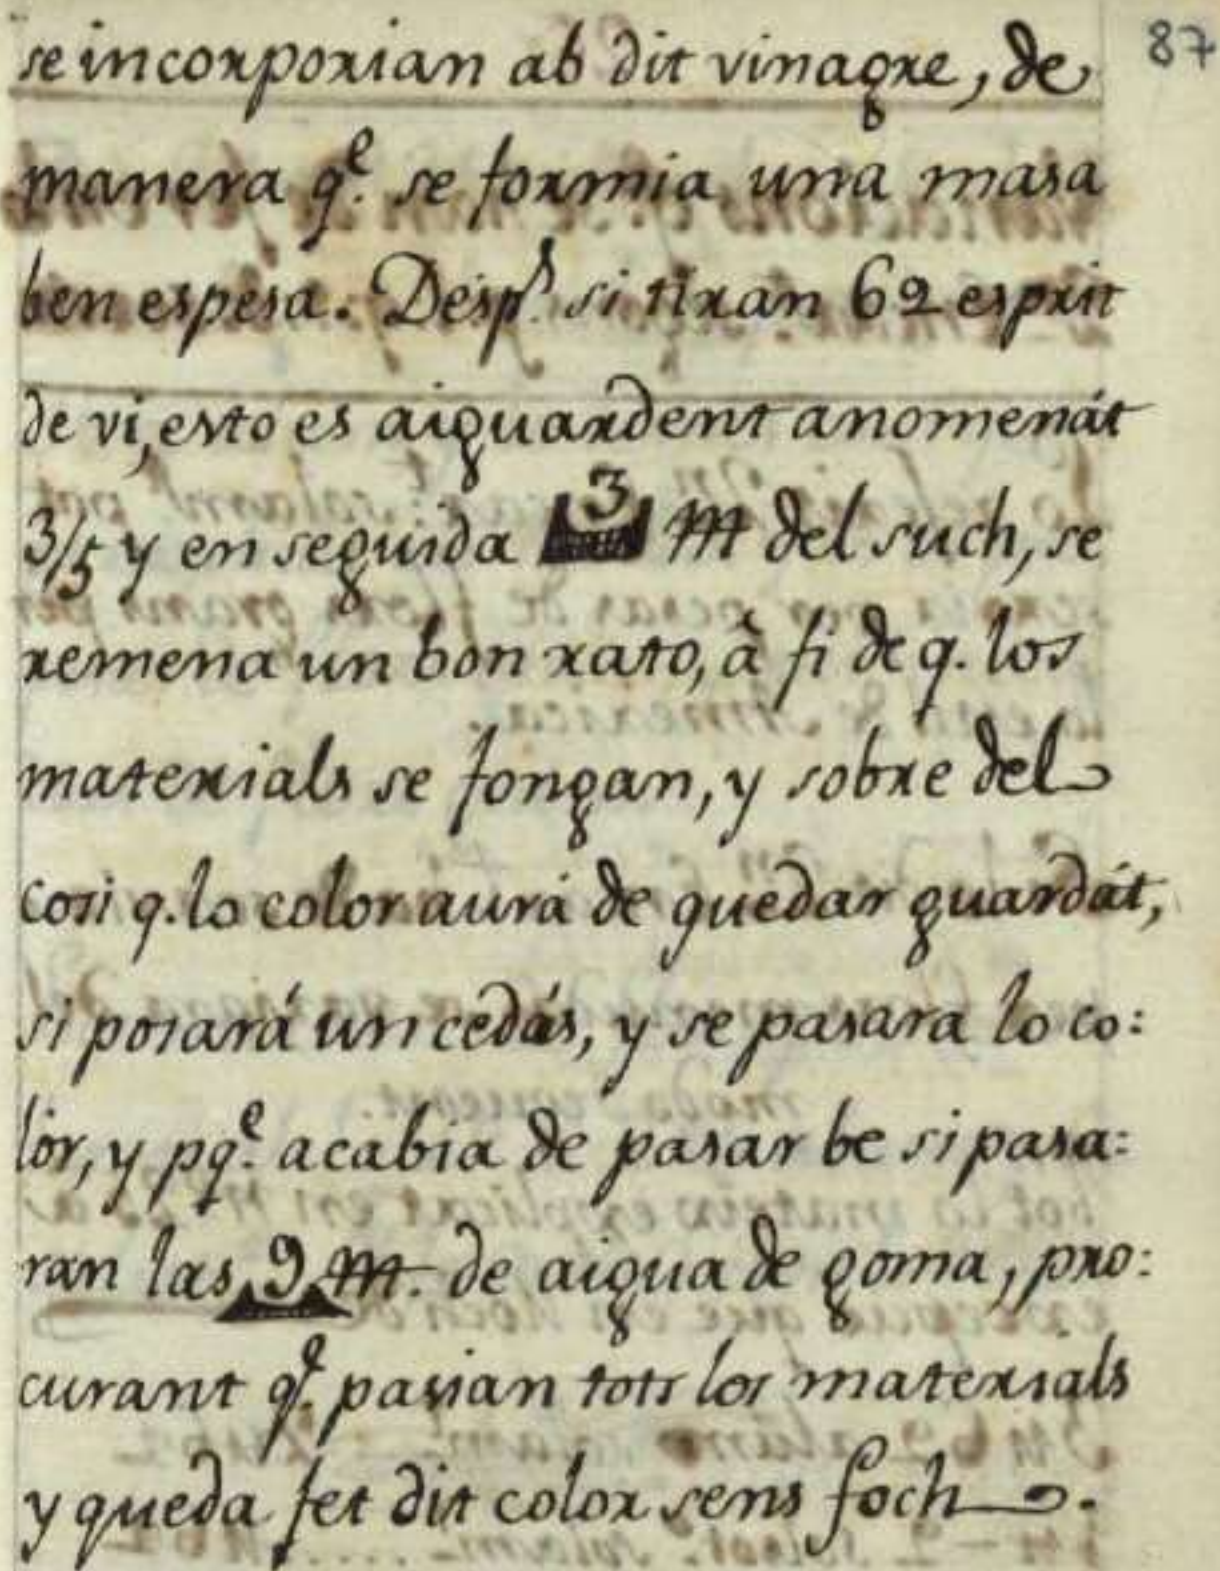 87
se incorporian ab dit vinagre, de
manera qᵉ. se formia una masa
ben espesa. Desp.ˢ si tiran 62 esprit
de vi, esto es aiguardent anomenát
3/5 y en seguida 3 m del such, se
remena un bon rato, à fi de q. los
materials se fongan, y sobre del
cosi q. lo color aurá de quedar guardát,
si posará un cedás, y se pasara lo co:
lor, y pqᵉ. acabia de pasar be si pasa:
ran las 9 m. de aigua de goma, pro:
curant qᵉ. pasian tots los materials
y queda fet dit color sens foch.